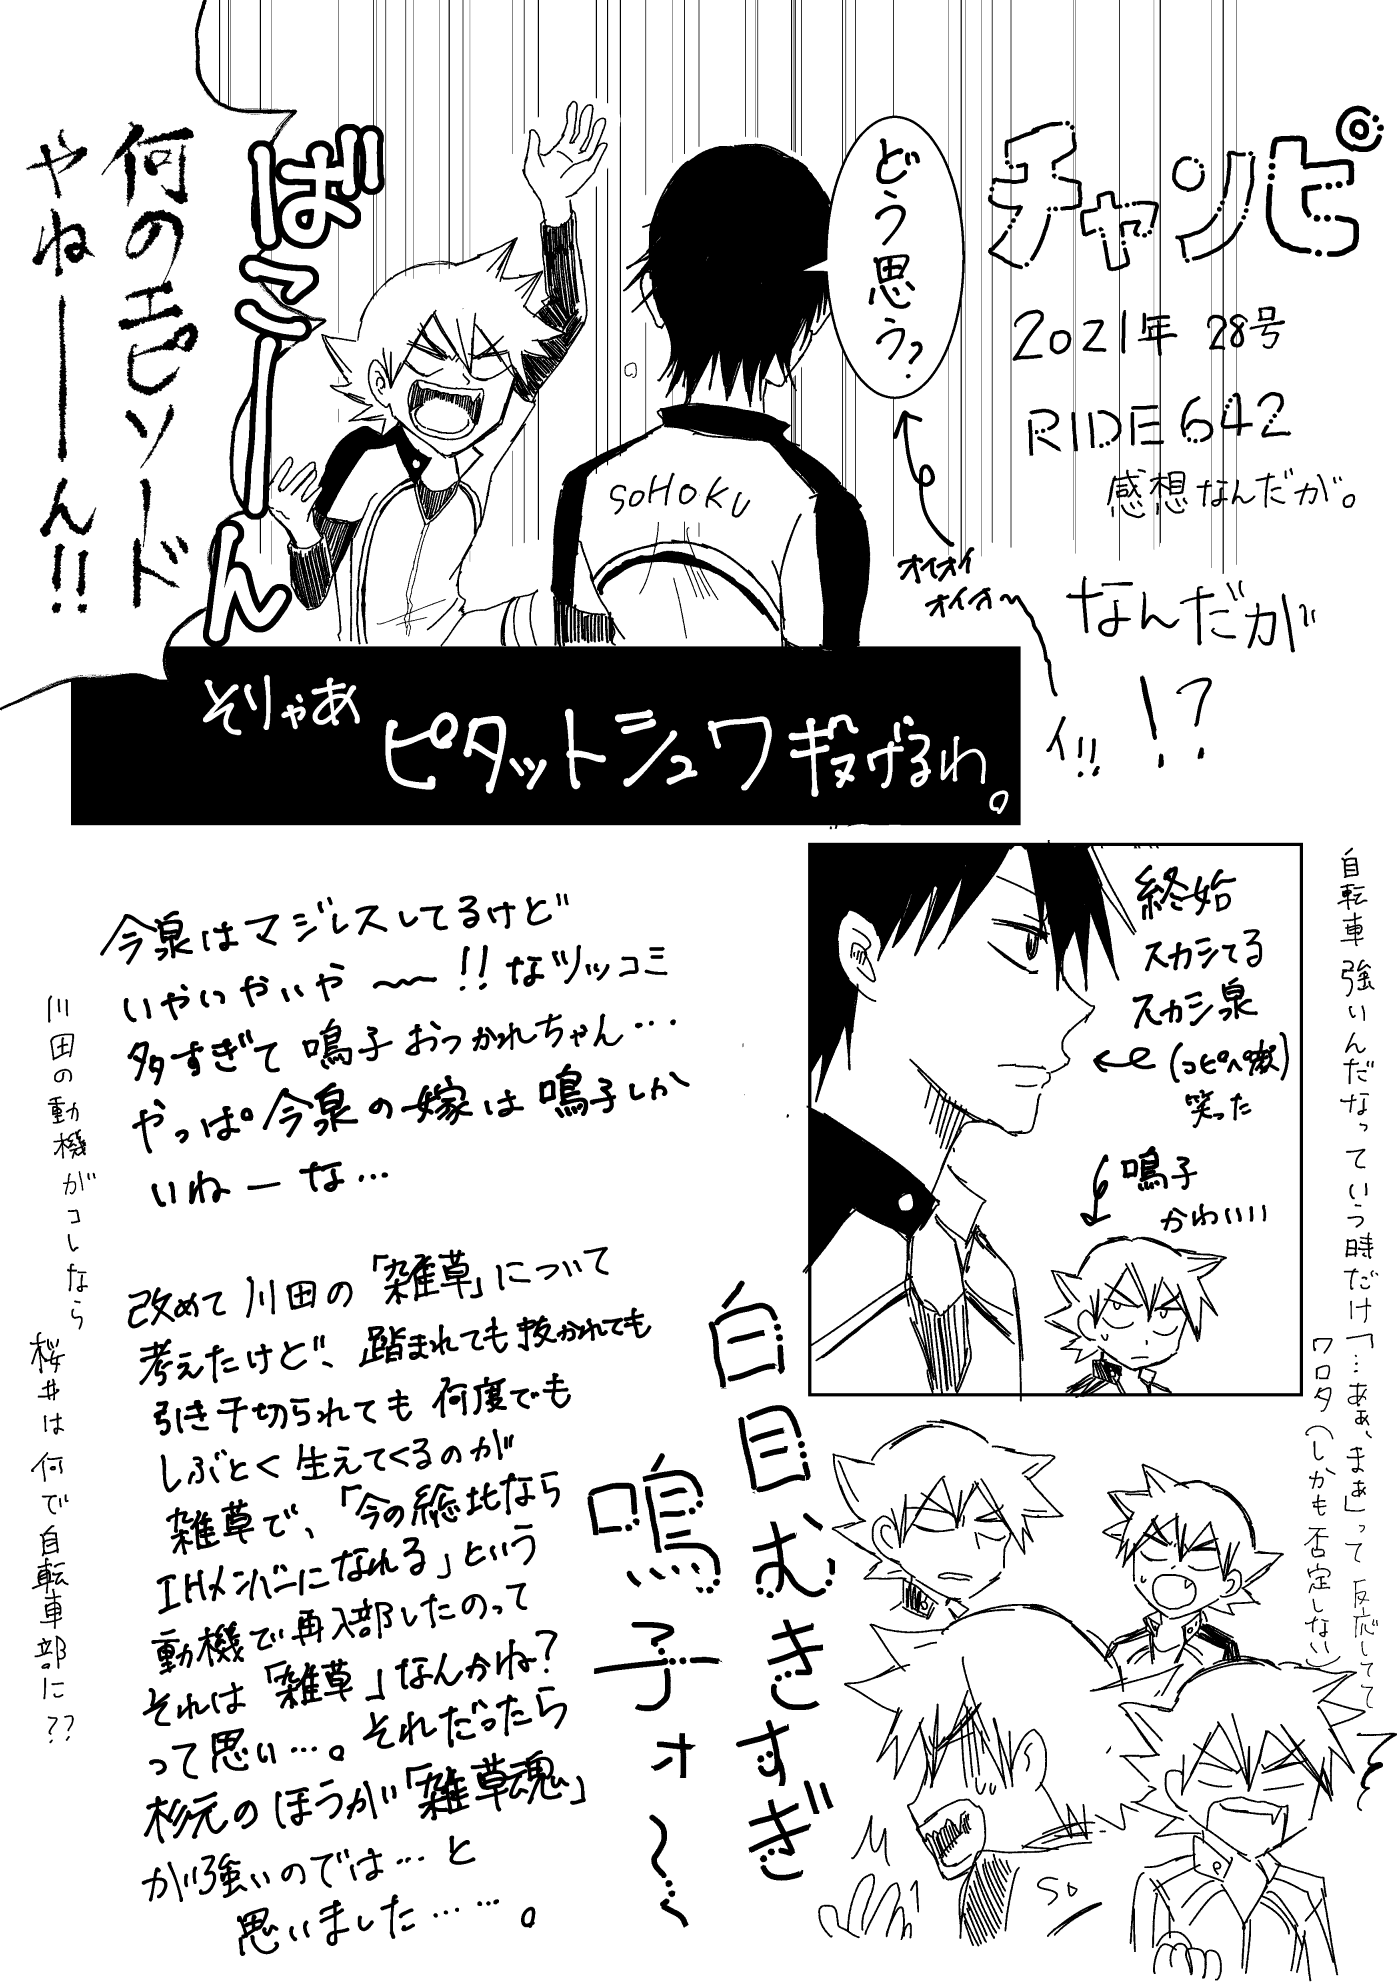 チャンピ
2021年 28号
RIDE 642
感想なんだが。
なんだが
!?
どう思う?
オイオイ
オイオ〜
イ!!
SOHOKU
ばこーん
何のエピソード
やねーーん!!
そりゃあ
ピタットシュワ投げるわ。
終始
スカシてる
スカシ泉
(コピペ泉)
笑った
鳴子
かわいい
自転車強いんだなっていう時だけ「…あぁ、まぁ」って反応してて
ワロタ(しかも否定しない)
今泉はマジレスしてるけど
いやいやいや〜〜!!なツッコミ
多すぎて鳴子おつかれちゃん…
やっぱ今泉の嫁は鳴子しか
いねーな…
改めて川田の「雑草」について
考えたけど、踏まれても抜かれても
引き千切られても何度でも
しぶとく生えてくるのが
雑草で、「今の総北なら
IHメンバーになれる」という
動機で再入部したのって
それは「雑草」なんかね?
って思い…。それだったら
杉元のほうが「雑草魂」
が強いのでは…と
思いました……。
川田の動機がコレなら
桜井は何で自転車部に??
白目むきすぎ
鳴子ォ〜〜
So